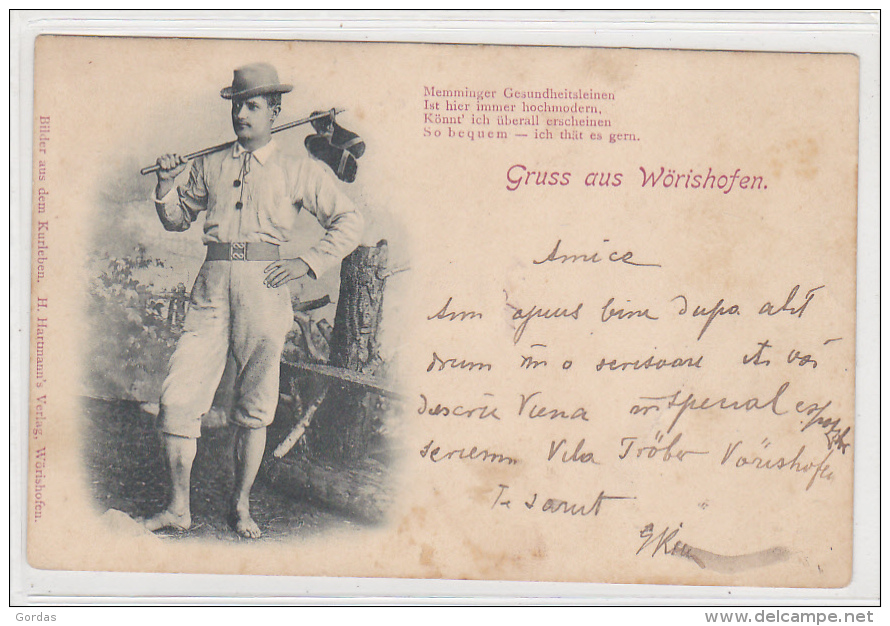 Bilder aus dem Kurleben. H. Hartmann's Verlag, Wörishofen.
Memminger Gesundheitsleinen
Ist hier immer hochmodern,
Könnt' ich überall erscheinen
So bequem — ich thät es gern.
Gruss aus Wörishofen.
Amice
Am ajuns bine dupa alt
drum în o scrisoare îti voi
descrie Viena în special
scriemi Vila Tröber Vörishofen
Te sarut
Gordas
www.delcampe.net